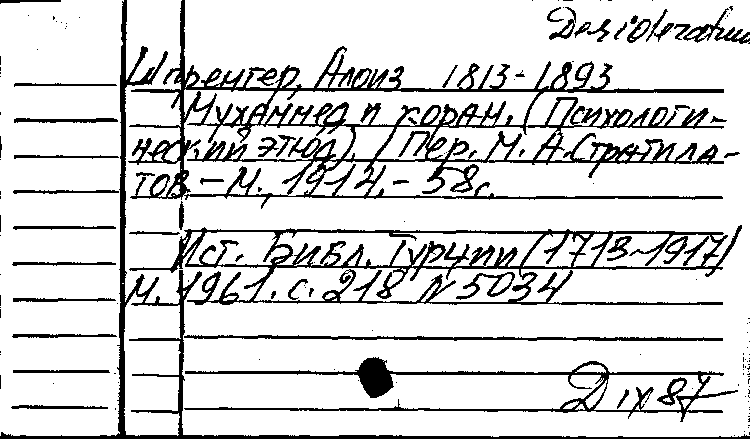 Desideratum
Шпренгер, Алоиз 1813-1893
Мухаммед и коран. (Психологи-
ческий этюд). / Пер. М. А. Стратила-
тов. - М., 1914. - 58с.
Ист. Библ. Турции (1713-1917)
М. 1961. с. 218 N 5034
D ıx 87